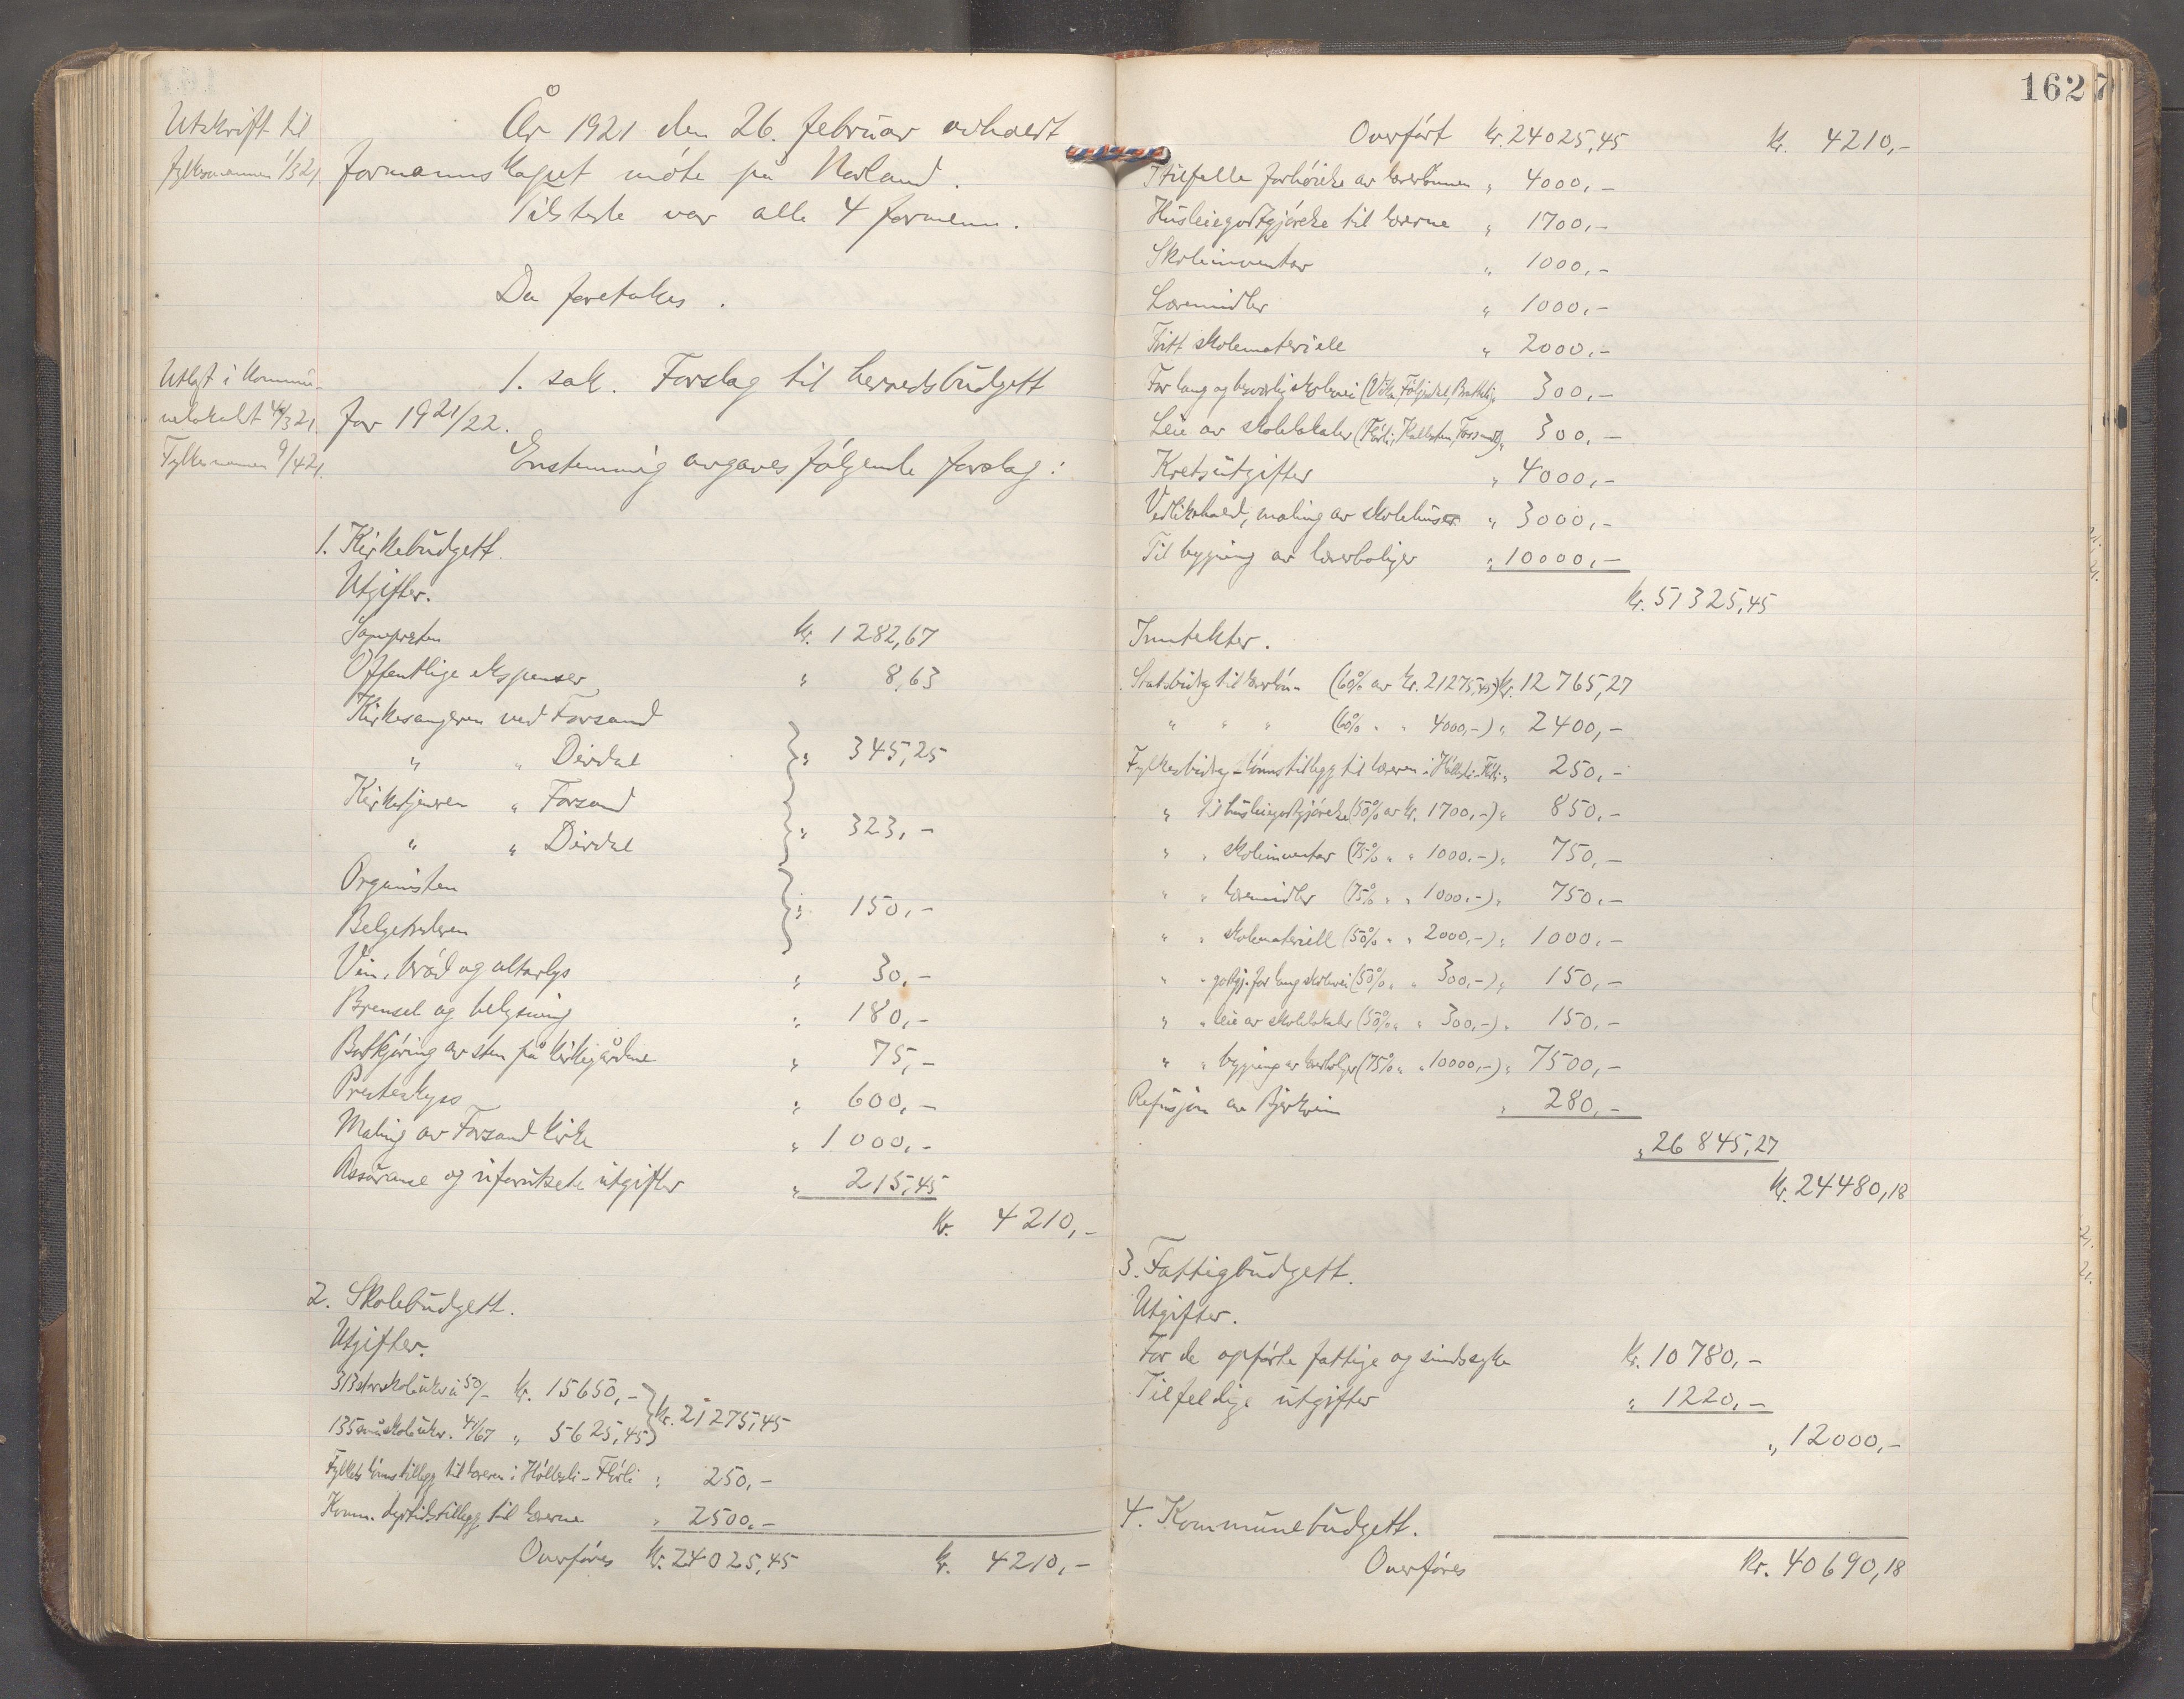 Utskrift til
fylkesmannen 1/3 21
År 1921 den 26. februar avholdt
formannskapet møte på Norland.
Tilstede var alle 4 formenn.
Da foretokes.
Utlagt i kommu-
nelokalet 4/3 21.
Fylkesmannen 9/4 21.
1. sak. Forslag til herredsbudgett
for 1921/22.
Enstemmig avgaves følgende forslag:
1. Kirkebudgett.
Utgifter.
Sognepresten kr. 1282,67
Offentlige ekspenser " 8,63
Kirkesangeren ved Forsand
" " Dirdal } " 345,25
Kirketjeneren " Forsand
" " Dirdal } " 323,-
Organisten
Belgetrederen } " 150,-
Vin, brød og alterlys " 30,-
Brensel og belysning " 180,-
Bortkjøring av sten på kirkegårdene " 75,-
Presteskyss " 600,-
Maling av Forsand kirke " 1000,-
Assuranse og uforutsete utgifter " 215,45
kr. 4210,-
2. Skolebudgett.
Utgifter.
313 storskoleuker à 50/- kr. 15650,-
135 småskoleuker. 41/67 " 5625,45 } kr. 21275,45
Fylkets lønnstillegg til læreren i Høllesli-Flørli " 250,-
Komm. dyrtidstillegg til lærerne " 2500,-
Overføres kr. 24025,45 kr. 4210,-
1627
Overført kr. 24025,45 kr. 4210,-
I tilfelle forhøielse av lærerlønnen " 4000,-
Husleiegodtgjørelse til lærerne " 1700,-
Skoleinventar " 1000,-
Læremidler " 1000,-
Fritt skolemateriell " 2000,-
For lang og besværlig skolevei " 300,-
Leie av skolelokaler (Flørli, " 300,-
Kretsutgifter " 4000,-
Vedlikehold, maling av skolehuser " 3000,-
Til bygging av lærerboliger " 10000,-
kr. 51325,45
Inntekter.
Statsbidrag til lærerløn- (60% av kr. 21275,45) kr. 12765,27
" " " (60% " " 4000,-) " 2400,-
Fylkesbidrag - lønnstillegg til læreren i Høllesli-Flørli " 250,-
" til husleiegodtgjørelse (50% av kr. 1700,-) " 850,-
" " skoleinventar (75% " " 1000,-) " 750,-
" " læremidler (75% " " 1000,-) " 750,-
" " skolemateriell (50% " " 2000,-) " 1000,-
" " godtgj. for lang skolevei (50% " " 300,-) " 150,-
" " leie av skolelokaler (50% " " 300,-) " 150,-
" " bygging av lærerboliger (75% " " 10000,-) " 7500,-
Refusjon av Bjerkreim " 280,-
" 26845,27
kr. 24480,18
3. Fattigbudgett.
Utgifter.
For de opførte fattige og sindssyke kr. 10780,-
Tilfeldige utgifter " 1220,-
" 12000,-
4. Kommunebudgett.
Overføres kr. 40690,18